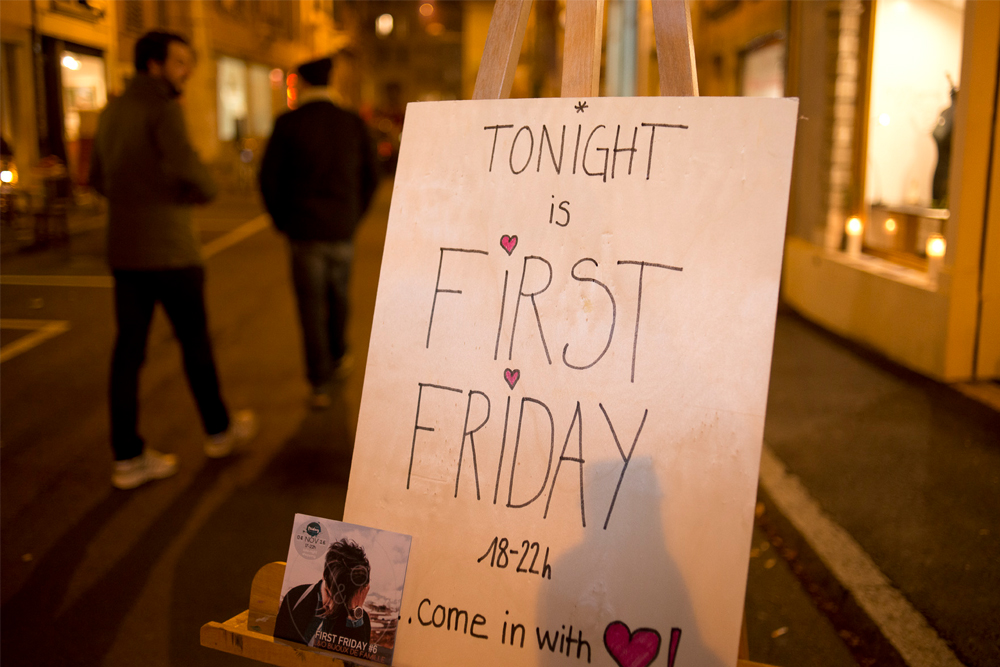 *
TONIGHT
is
FiRST
FRiDAY
18-22h
..come in with ♥!
NOV
FIRST FRIDAY #6